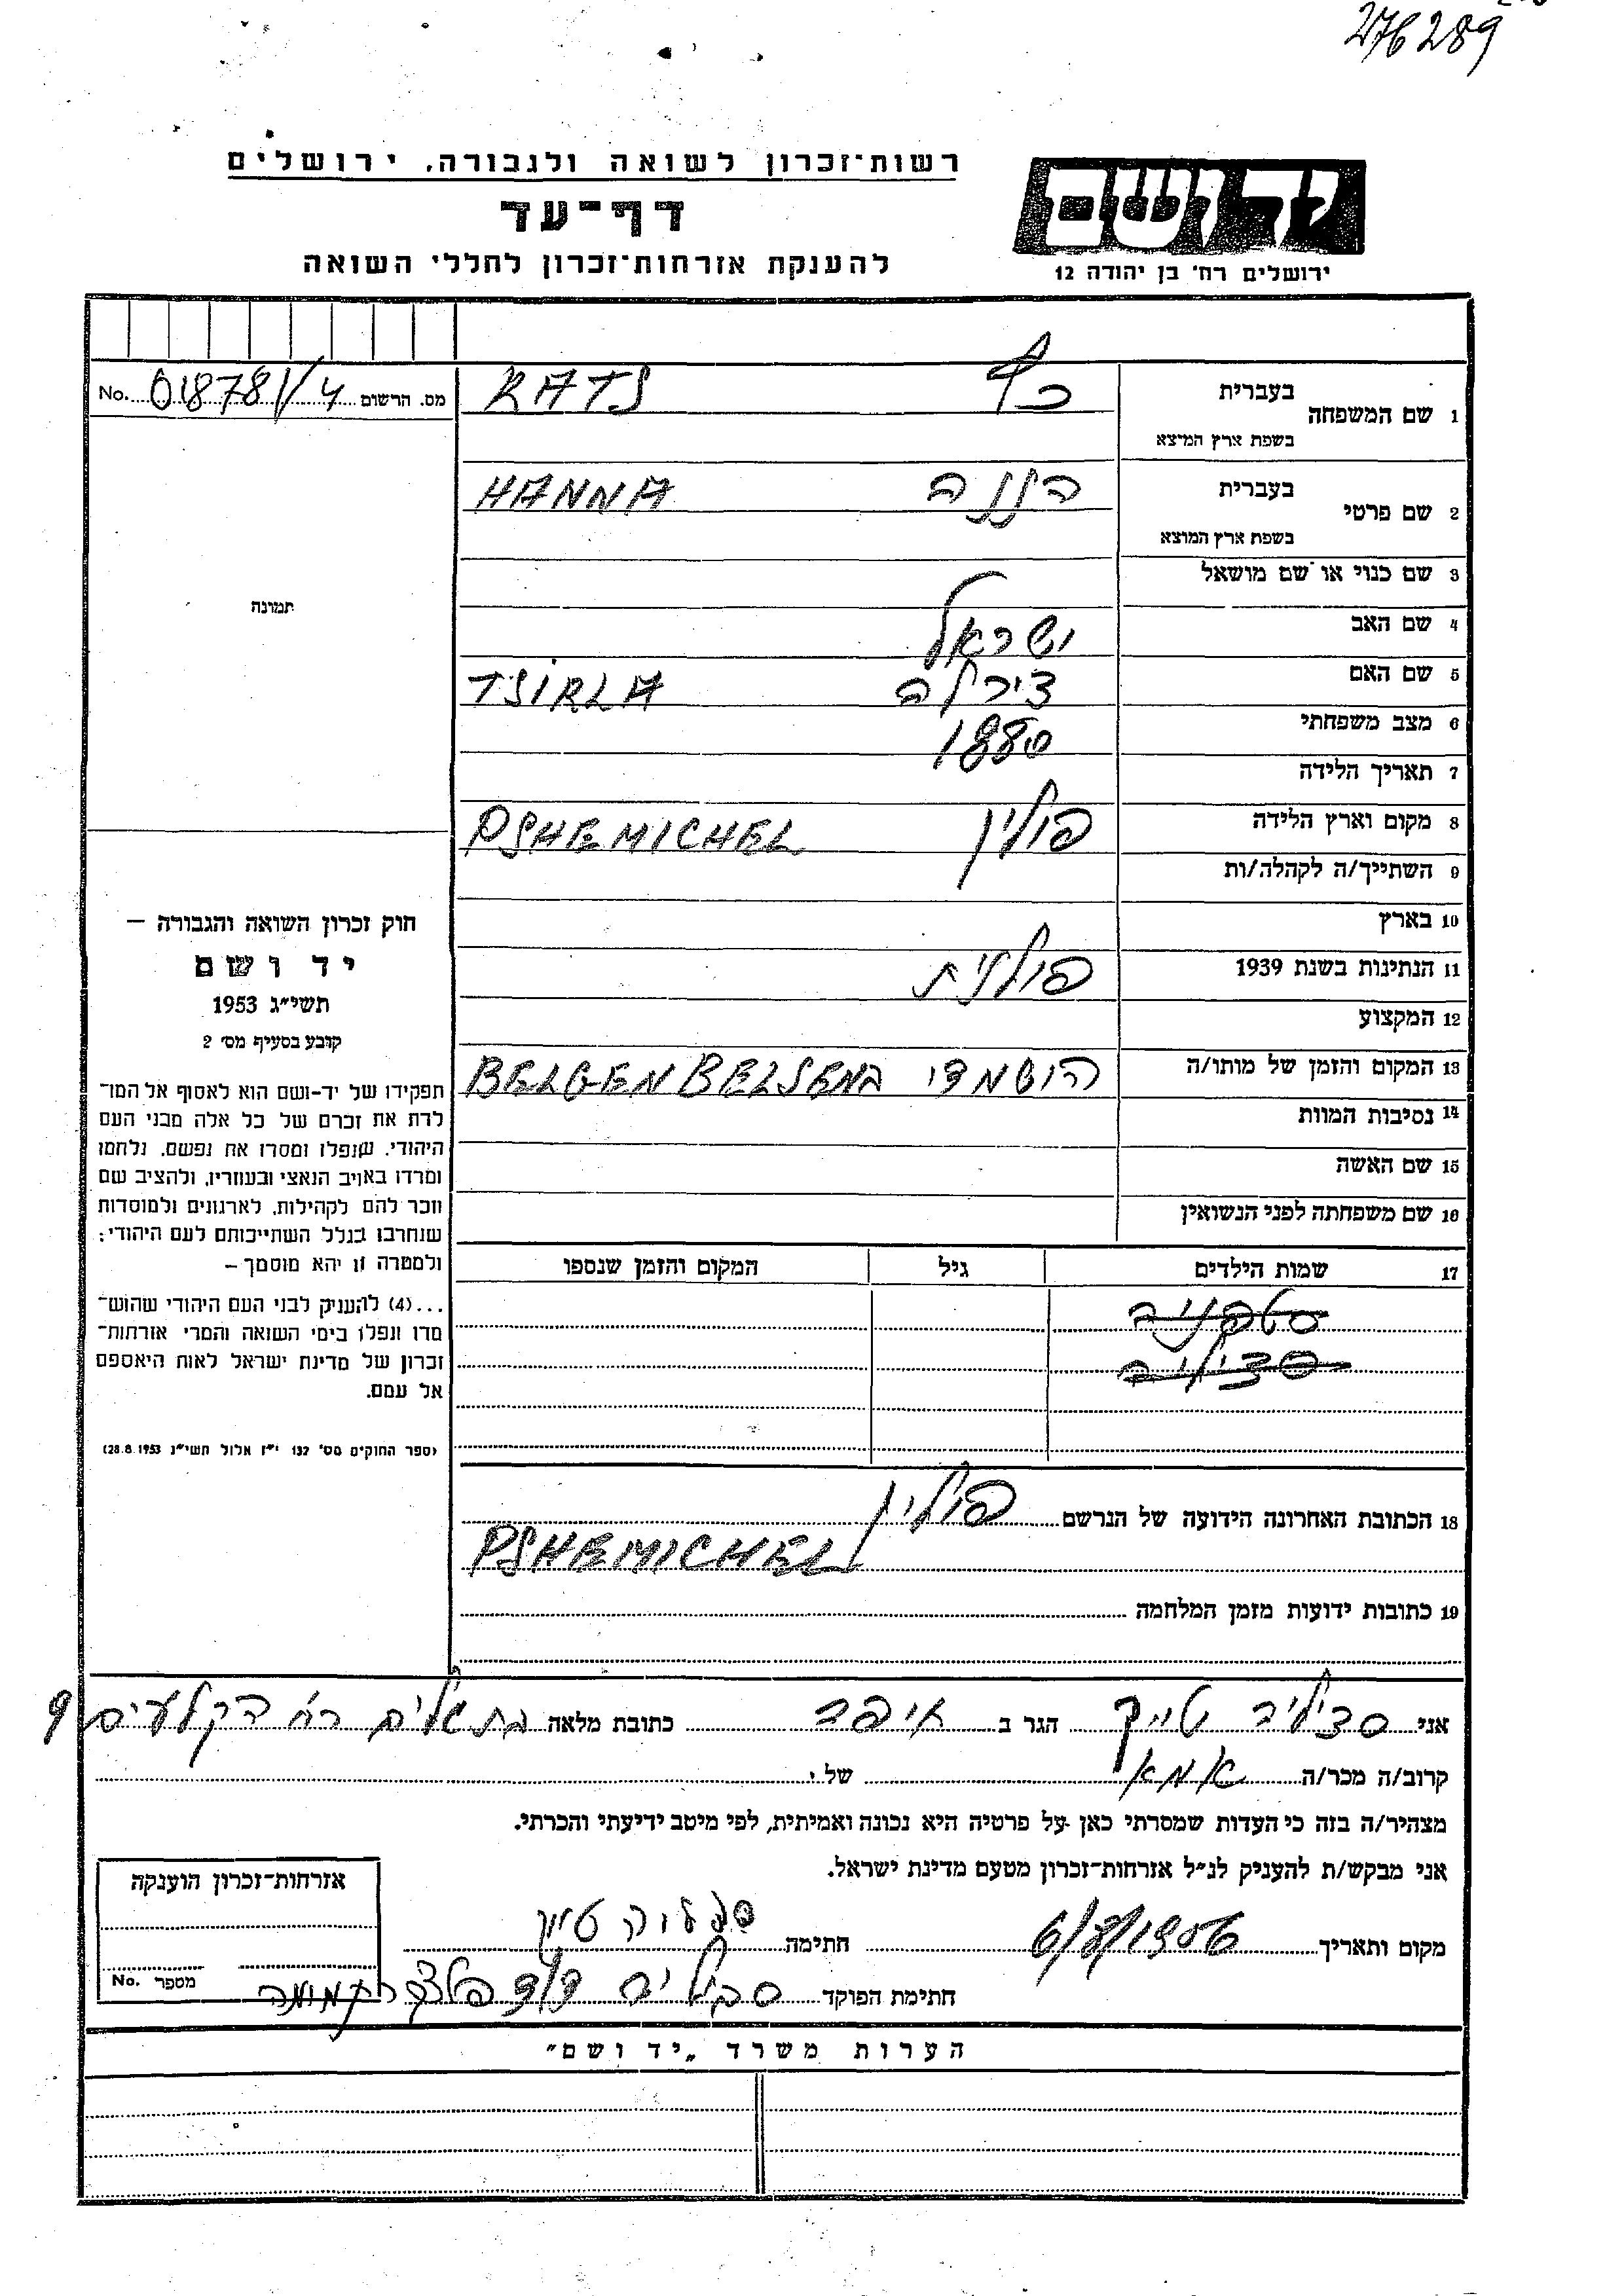 276289
רשות־זכרון לשואה ולגבורה, ירושלים
דף־עד
להענקת אזרחות־זכרון לחללי השואה
ידושם
ירושלים רח' בן יהודה 12
מס. הרשום 018781/4 No.
1 שם המשפחה בעברית
RATS
בשפת ארץ המוצא
2 שם פרטי בעברית הננה HANNA
בשפת ארץ המוצא
3 שם כנוי או שם מושאל
4 שם האב ישראל
5 שם האם צירלה TSIRLA
6 מצב משפחתי 1880
7 תאריך הלידה
8 מקום וארץ הלידה פולין PSHEMICHEL
9 השתייך/ה לקהלה/ות
10 בארץ
11 הנתינות בשנת 1939 פולנית
12 המקצוע
13 המקום והזמן של מותו/ה הושמדי בBELGEN BELSEN
14 נסיבות המוות
15 שם האשה
16 שם משפחתה לפני הנשואין
17 שמות הילדים גיל המקום והזמן שנספו
סטפניה
ססיליה
18 הכתובת האחרונה הידועה של הנרשם פולין
PSHEMICHEL
19 כתובות ידועות מזמן המלחמה
תמונה
חוק זכרון השואה והגבורה –
יד ושם
תשי״ג 1953
קובע בסעיף מס׳ 2
תפקידו של יד-ושם הוא לאסוף אל המו־
לדת את זכרם של כל אלה מבני העם
היהודי, שנפלו ומסרו את נפשם, נלחמו
ומרדו באויב הנאצי ובעוזריו, ולהציב שם
וזכר להם לקהילות, לארגונים ולמוסדות
שנחרבו בגלל השתייכותם לעם היהודי;
ולמטרה זו יהא מוסמך –
...(4) להעניק לבני העם היהודי שהוש־
מדו ונפלו בימי השואה והמרי אזרחות־
זכרון של מדינת ישראל לאות היאספם
אל עמם.
(ספר החוקים מס׳ 132 י״ז אלול תשי״ג 28.8.1953)
אני ססיליה טייך הגר ב חיפה כתובת מלאה בת גלים רח הקלעים 9
קרוב/ה מכר/ה אמא של י
מצהיר/ה בזה כי העדות שמסרתי כאן על פרטיה היא נכונה ואמיתית, לפי מיטב ידיעתי והכרתי.
אני מבקש/ת להעניק לנ״ל אזרחות־זכרון מטעם מדינת ישראל.
מקום ותאריך 6/8/1956 חתימה
חתימת הפוקד
אזרחות־זכרון הוענקה
מספר No.
הערות משרד „יד ושם״